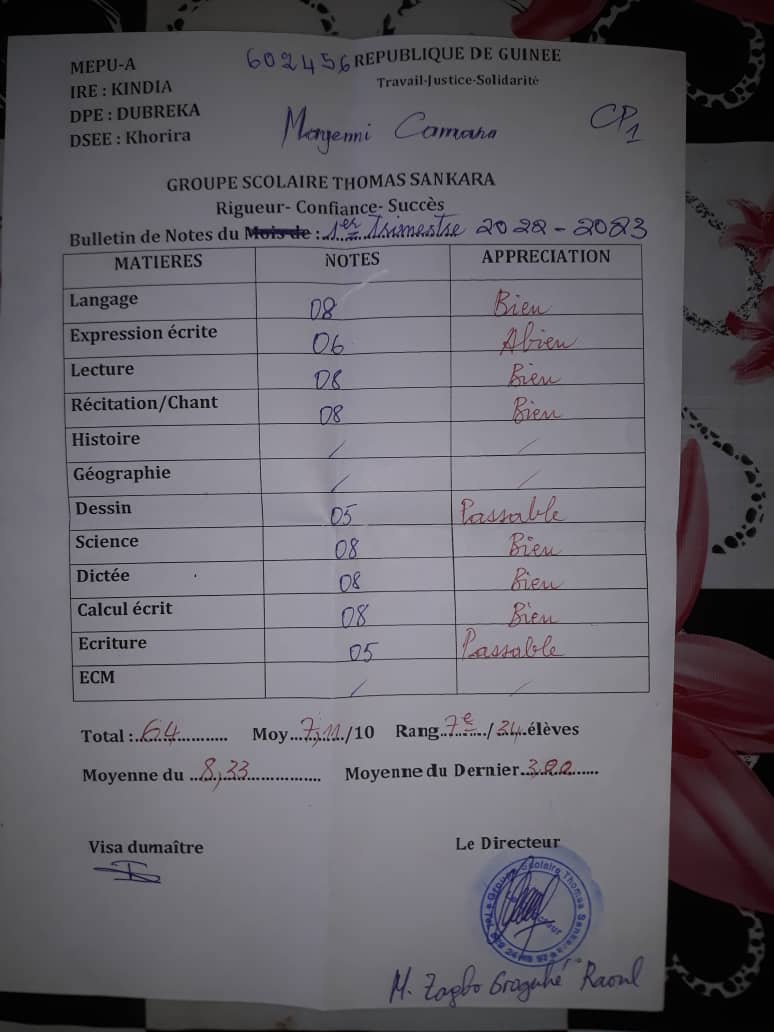 MEPU-A 602456 REPUBLIQUE DE GUINEE
IRE : KINDIA Travail-Justice-Solidarité
DPE : DUBREKA
DSEE : Khorira Camara CP1
GROUPE SCOLAIRE THOMAS SANKARA
Rigueur- Confiance- Succès
Bulletin de Notes du Mois de : 1er Trimestre 2022-2023
MATIERES NOTES APPRECIATION
Langage 08 Bien
Expression écrite 06 Abien
Lecture 08 Bien
Récitation/Chant 08 Bien
Histoire / /
Géographie / /
Dessin 05 Passable
Science 08 Bien
Dictée 08 Bien
Calcul écrit 08 Bien
Ecriture 05 Passable
ECM / /
Total : 64 Moy 7,11/10 Rang 7e/34 élèves
Moyenne du 8,33 Moyenne du Dernier
Visa dumaître Le Directeur
Le Groupe Scolaire Thomas Sankara
M. Zagbo Raoul